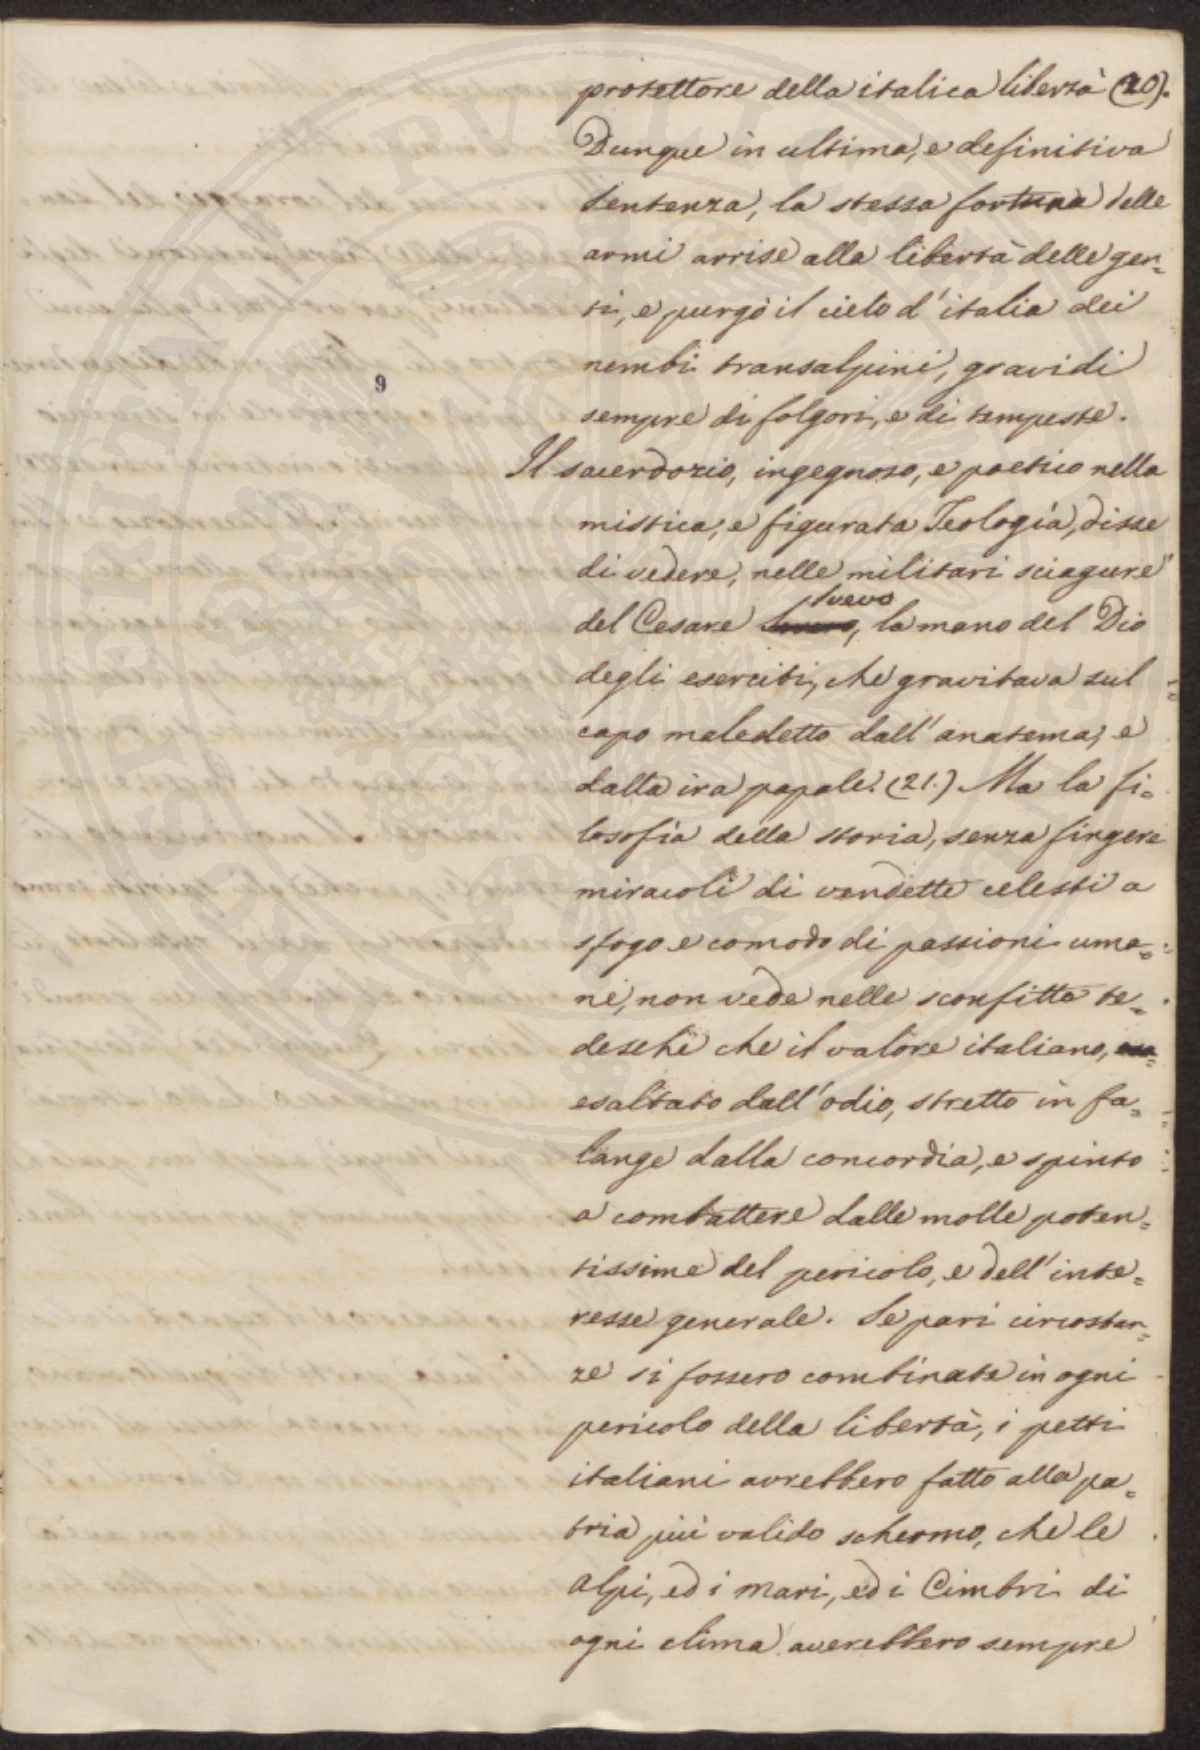 protettore della italica libertà (20).
Dunque in ultima, e definitiva
sentenza, la stessa fortuna delle
armi arrise alla libertà delle gen=
ti, e purgò il cielo d'italia dei
nembi transalpini, gravidi
9
sempre di folgori, e di tempeste.
Il sacerdozio, ingegnoso, e poetico nella
mistica, e figurata Teologia, disse
di vedere, nelle militari sciagure
svevo
del Cesare, la mano del Dio
degli eserciti, che gravitava sul
capo maledetto dall'anatema, e
dalla ira papale. (21.) Ma la fi=
losofia della storia, senza fingere
miracoli di vendette celesti a
sfogo e comodo di passioni uma=
ne, non vede nelle sconfitte te=
desche che il valore italiano,
esaltato dall'odio, stretto in fa=
lange dalla concordia, e spinto
a combattere dalle molle poten=
tissime del pericolo, e dell'inte=
resse generale. Se pari circostan=
ze si fossero combinate in ogni
pericolo della libertà, i petti
italiani avrebbero fatto alla pa=
tria più valido schermo, che le
alpi, ed i mari, ed i Cimbri di
ogni clima averebbero sempre